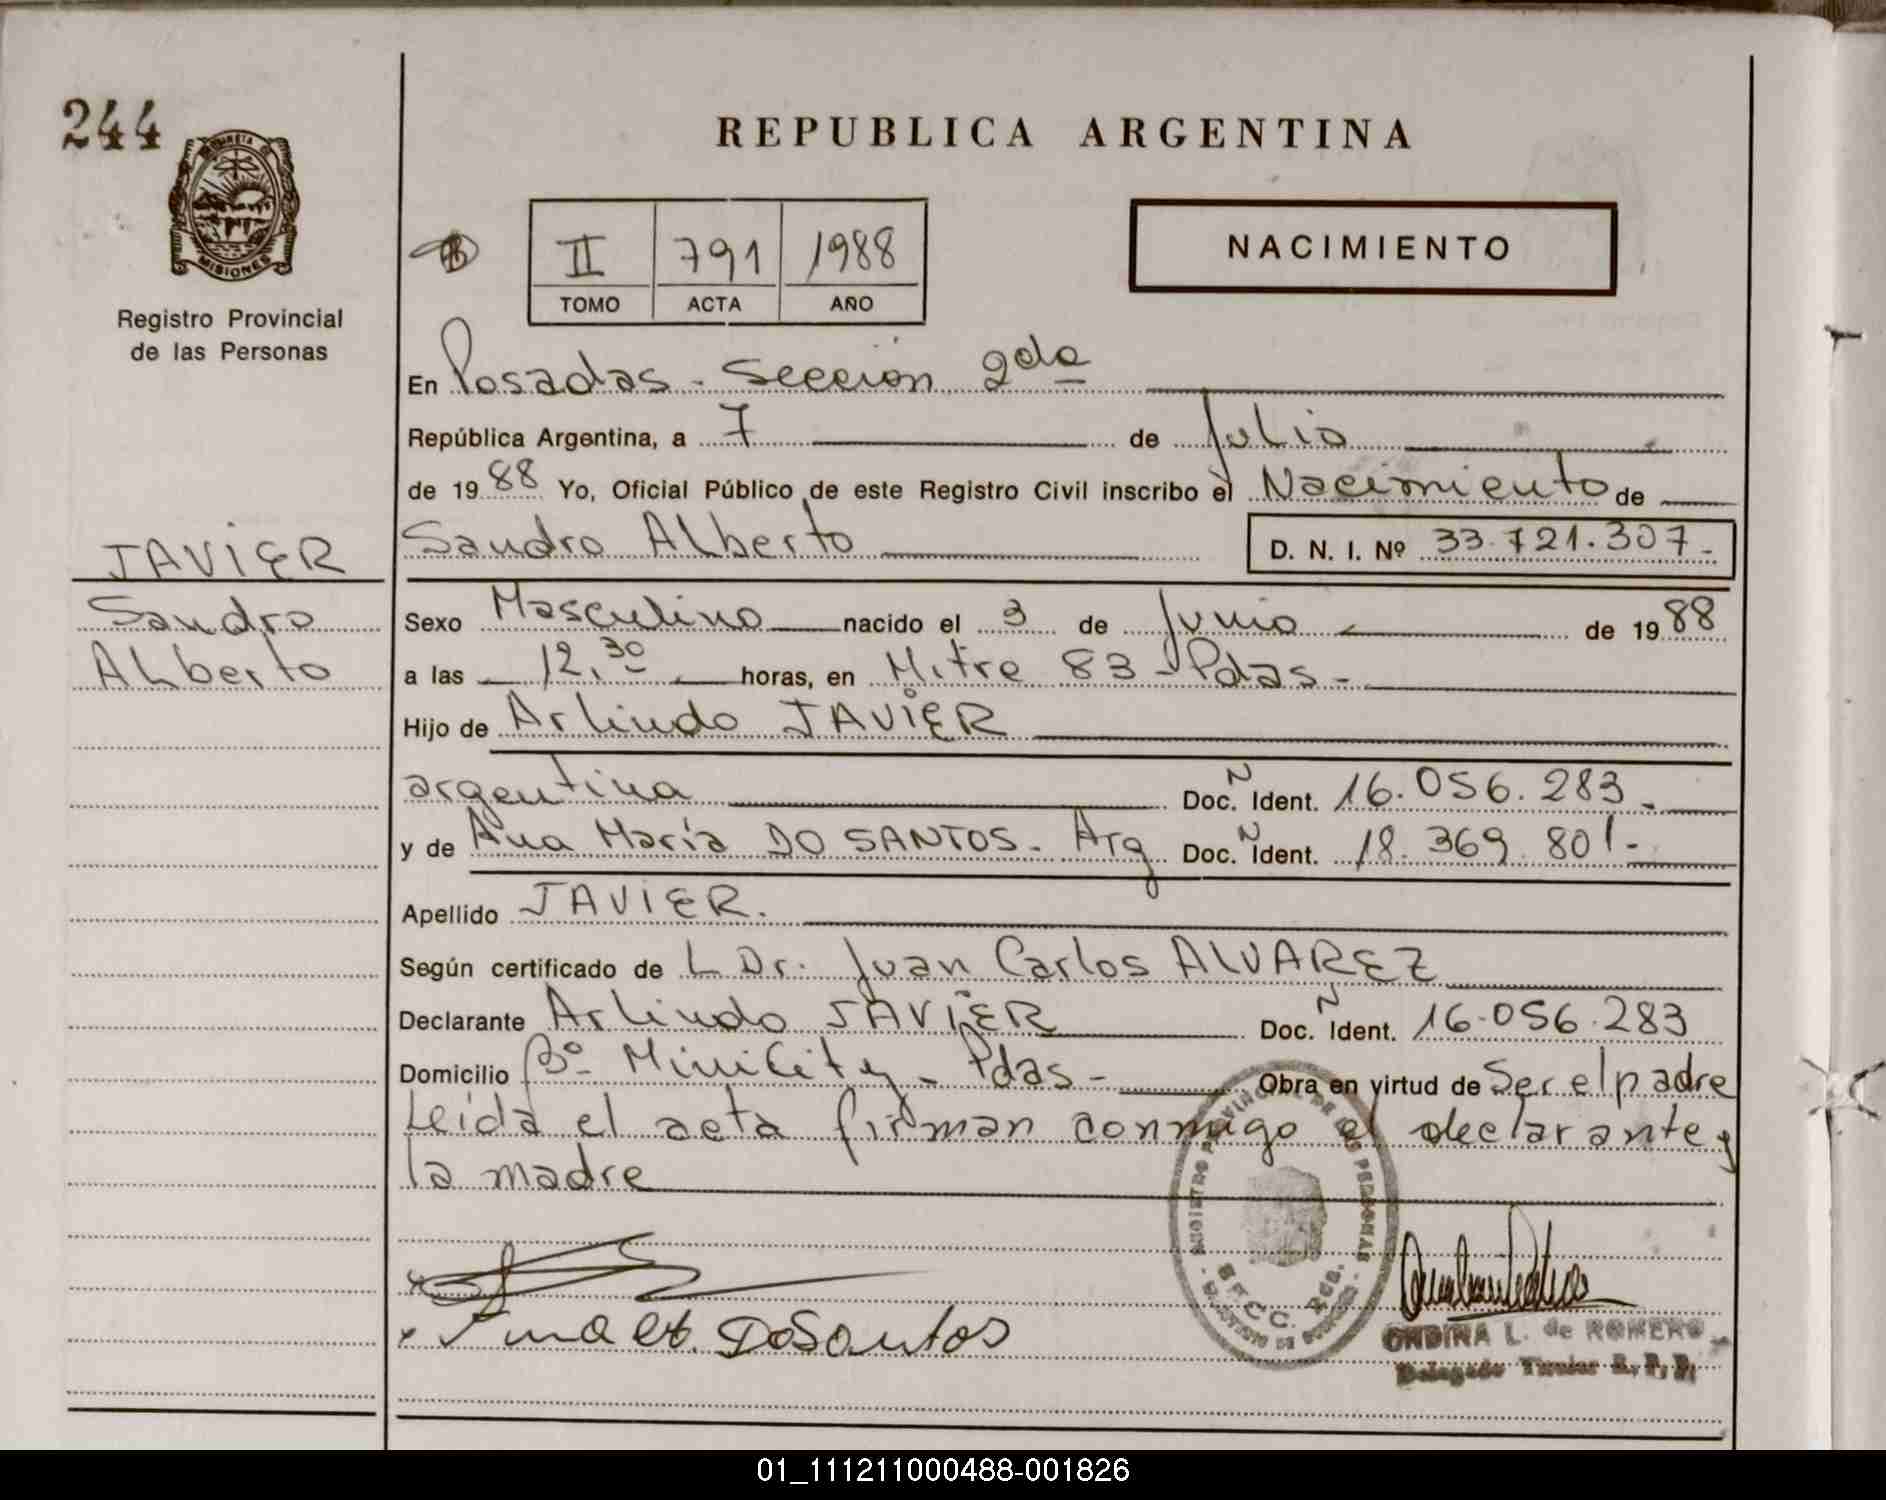 244
MISIONES
Registro Provincial
de las Personas
REPUBLICA ARGENTINA
II 791 1988
TOMO ACTA AÑO
NACIMIENTO
En Posadas - Sección 2da
República Argentina, a 7 de Julio
de 1988 Yo, Oficial Público de este Registro Civil inscribo el Nacimiento de
JAVIER
Sandro
Alberto
Sandro Alberto D. N. I. Nº 33.721.307.-
Sexo Masculino nacido el 3 de Junio de 1988
a las 12.30 horas, en Mitre 83 - Pdas -
Hijo de Arlindo JAVIER
argentina Doc. N Ident. 16.056.283.-
y de Ana María DO SANTOS - Arg Doc. N Ident. 18.369.801.-
Apellido JAVIER.
Según certificado de L Dr. Juan Carlos ALVAREZ
Declarante Arlindo JAVIER Doc. N Ident. 16.056.283
Domicilio Bº MiniCity - Pdas - Obra en virtud de Ser el padre
Leída el acta firman conmigo el declarante y
la madre
DoSantos
ONDINA L. de ROMERO
Delegado Titular R. P. P.
01_111211000488-001826